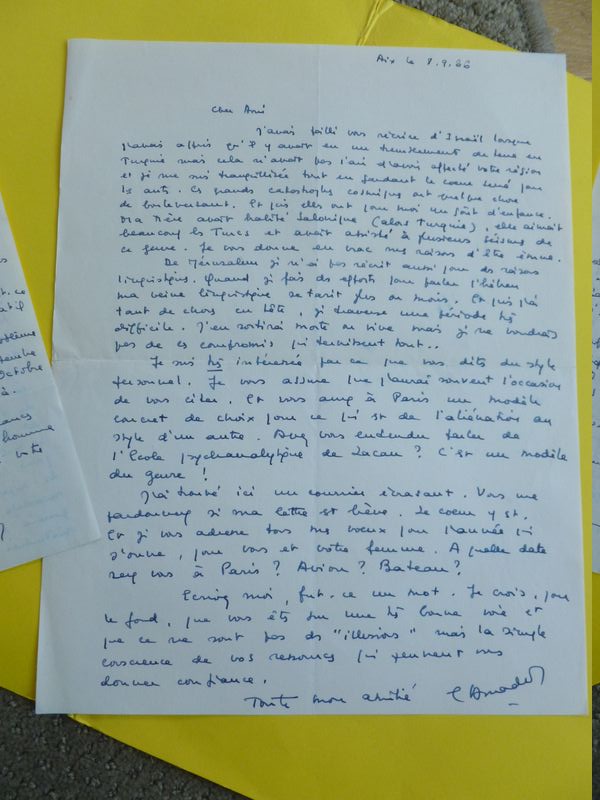 Aix le 8.9.66
Cher Ami
J'avais failli vous récrire d'Israël lorsque
j'avais appris qu'il y avait eu un tremblement de terre en
Turquie mais cela n'avait pas l'air d'avoir affecté votre région
et je me suis tranquillisée tout en gardant le coeur serré pour
les autres. Ces grandes catastrophes cosmiques ont quelque chose
de bouleversant. Et puis elles ont pour moi un goût d'enfance.
Ma Mère avait habité Salonique (alors Turquie), elle aimait
beaucoup les Turcs et avait assisté à plusieurs séismes de
ce genre. Je vous donne en vrac mes raisons d'être émue.
De Jérusalem je n'ai pas récrit aussi pour des raisons
linguistiques. Quand je fais des efforts pour parler l'hébreu
ma veine linguistique se tarit plus ou moins. Et puis j'ai
tant de choses en tête, je traverse une période très
difficile. J'en sortirai morte ou vive mais je ne voudrais
pas de ces compromis qui ternissent tout..
Je suis très intéressée par ce que vous dites du style
personnel. Je vous assure que j'aurai souvent l'occasion
de vous citer. Et vous aurez à Paris un modèle
concret de choix pour ce qui est de l'aliénation au
style d'un autre. Avez vous entendu parler de
l'Ecole psychanalytique de Lacan ? C'est un modèle
du genre !
J'ai trouvé ici un courrier écrasant. Vous me
pardonnerez si ma lettre est brève. Le coeur y est.
Et je vous adresse tous mes voeux pour l'année qui
s'ouvre, pour vous et votre femme. A quelle date
serez vous à Paris ? Avion ? Bateau ?
Ecrivez moi, fut-ce un mot. Je crois, pour
le fond, que vous êtes sur une très bonne voie et
que ce ne sont pas des "illusions" mais la simple
conscience de vos ressources qui peuvent vous
donner confiance.
Toute mon amitié